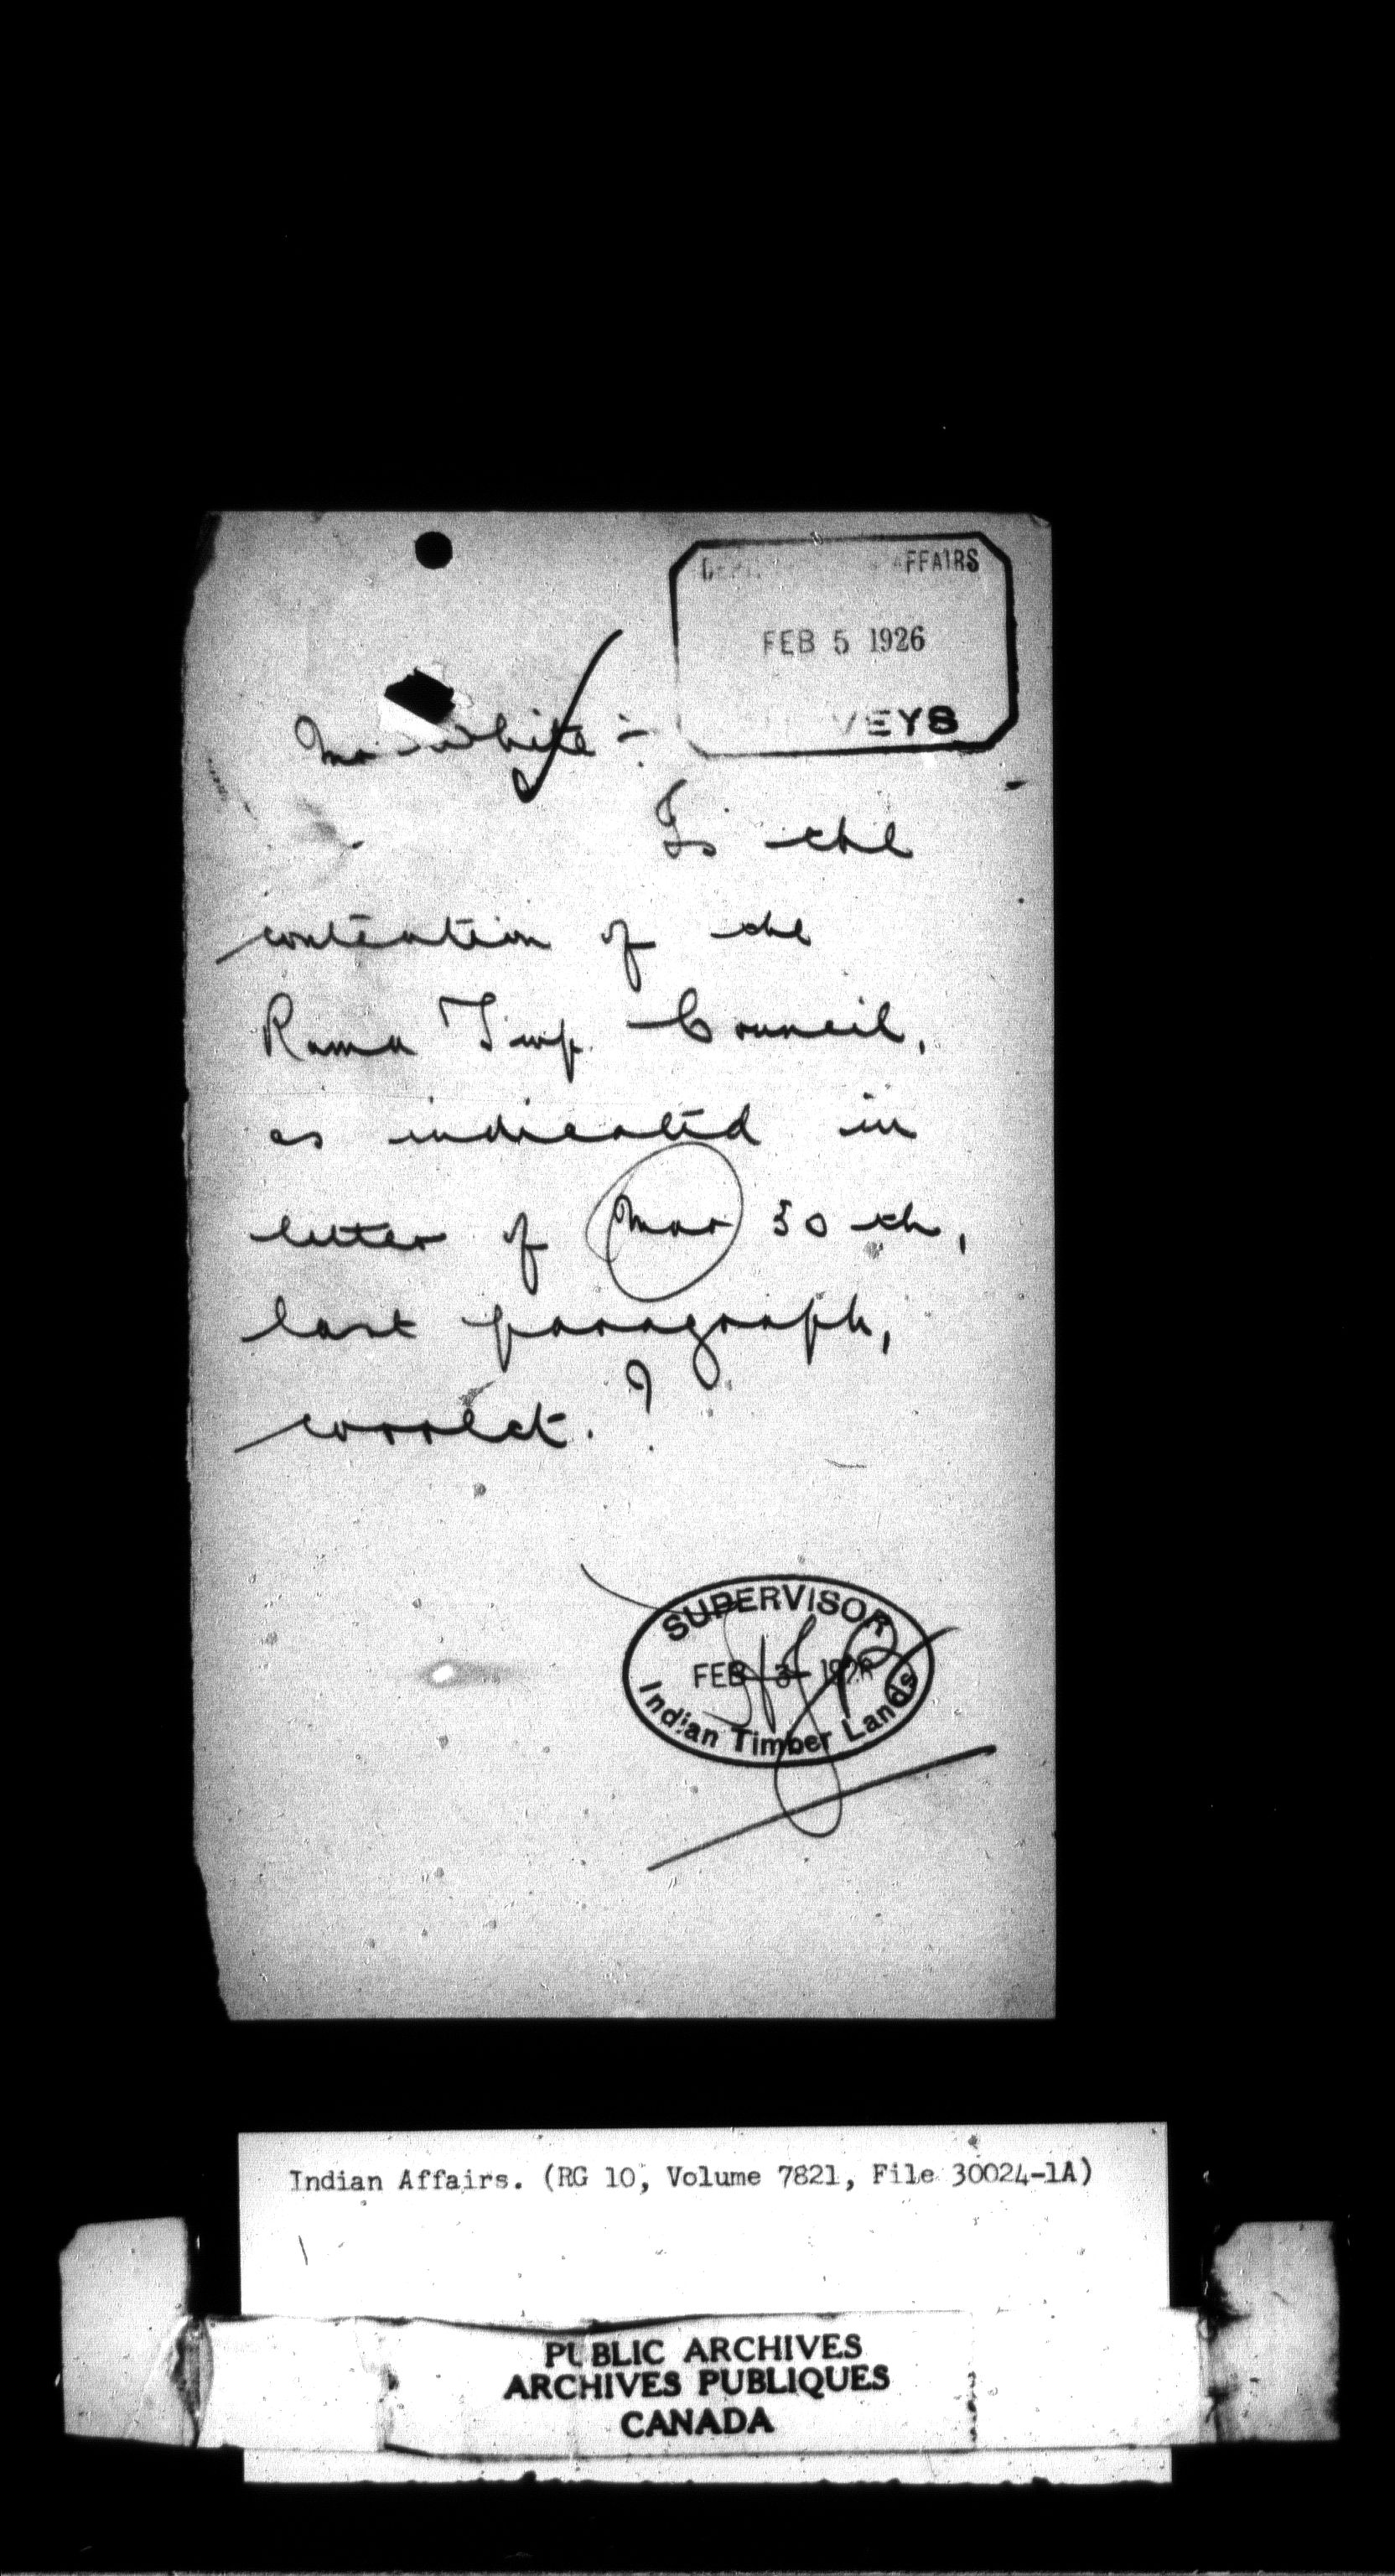 DEPT. AFFAIRS
FEB 5 1926
VEYS
Mr. White :-
Is the
contention of the
Rama Twp. Council,
as indicated in
letter of Mar 30 th,
last paragraph,
correct. ?
SUPERVISOR
FEB 3 1926
Indian Timber Lands
Indian Affairs. (RG 10, Volume 7821, File 30024-1A)
PUBLIC ARCHIVES
ARCHIVES PUBLIQUES
CANADA